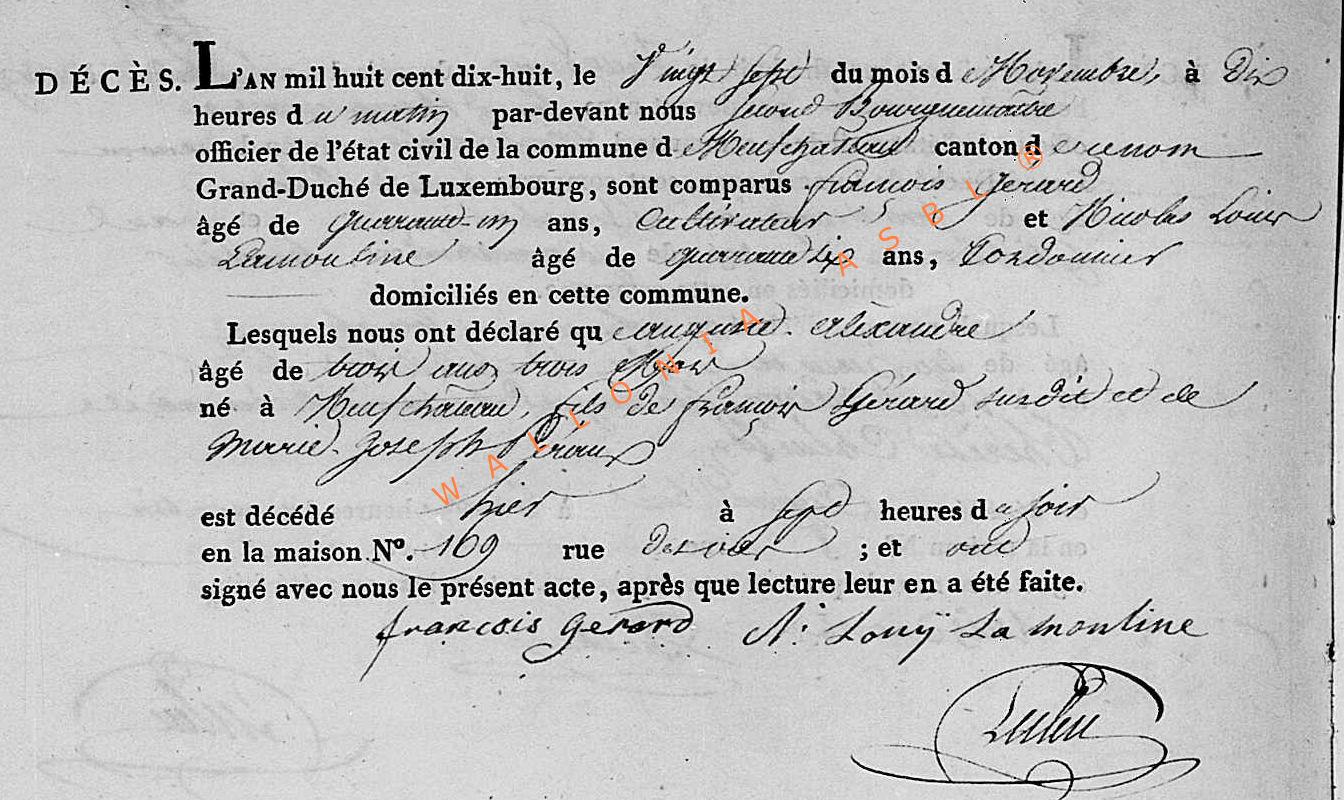 DÉCÈS. L'AN mil huit cent dix-huit, le Vingt Sept du mois d e Novembre, à Dix
heures d u matin par-devant nous second Bourguemaitre
officier de l'état civil de la commune d e Neufchateau canton d
Grand-Duché de Luxembourg, sont comparus francois Gerard
âgé de quarante-un ans, Cultivateur et Nicolas Louis
Lamouline âgé de quarante six ans, Cordonnier
domiciliés en cette commune.
Lesquels nous ont déclaré qu e auguste alexandre
âgé de trois ans trois Mois
né à Neufchateau, fils de françois Gérard susdit et de
Marie Joseph
est décédé hier à sept heures d u soir
en la maison N°. 169 rue ; et ont
signé avec nous le présent acte, après que lecture leur en a été faite.
francois Gerard N: Louÿ Lamouline
WALLONIA ASBL ®